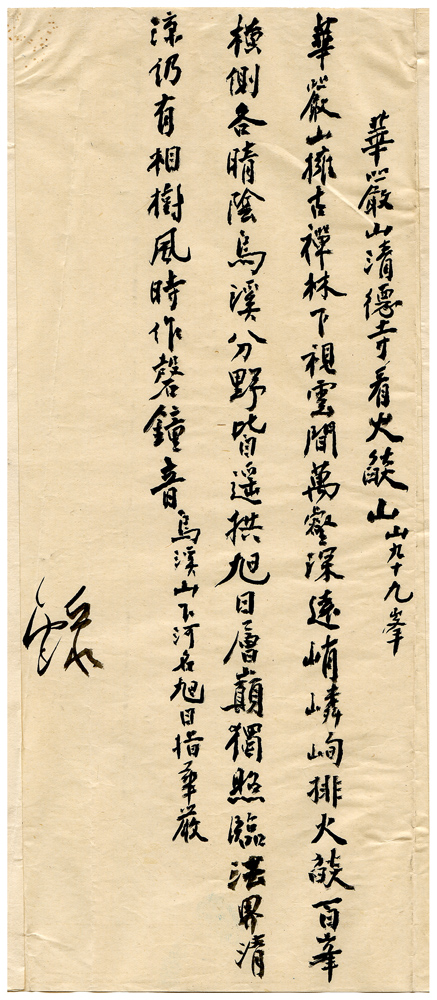 華嚴山清德寺看火燄山山九十九峯
華嚴山擁古禪林下視雲間萬壑深遠峭嶙峋排火燄百峯
橫側各晴陰烏溪分野皆遥拱旭日層巔獨照臨法界清
涼仍有相樹風時作磬鐘音烏溪山下河名旭日指華嚴